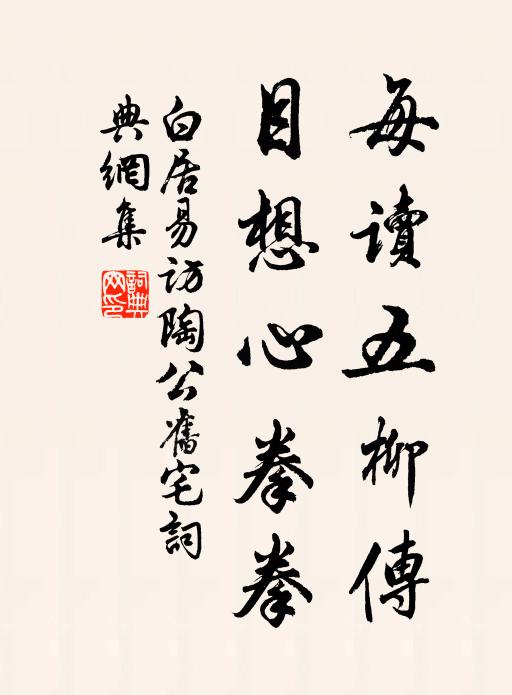 每讀五柳傳
目想心拳拳
白居易訪陶公舊宅詞
典網集
詞典
網印